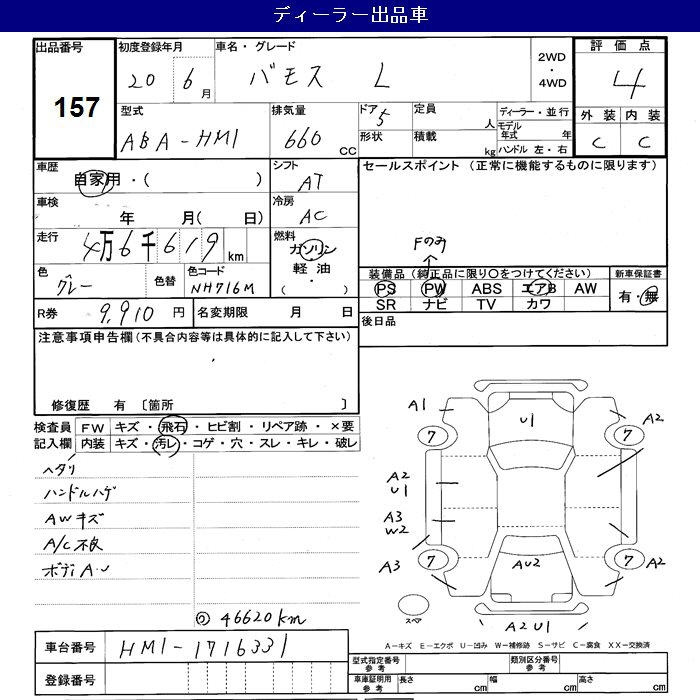 ディーラー出品車
出品番号
157
初度登録年月
20 6月
車名・グレード
バモス L
2WD
・
4WD
評価点
4
外装 内装
C C
型式
ABA-HM1
排気量
660 CC
ドア 5
形状
定員 人
積載 kg
ディーラー・並行
モデル年式 年
ハンドル 左・右
車歴
自家用・( )
シフト
AT
セールスポイント (正常に機能するものに限ります)
車検
年 月( 日)
冷房
AC
走行
4万6千619km
燃料
ガソリン
軽油
( ・ )
Fのみ
色
グレー
色替
色コード
NH716M
装備品(純正品に限り○をつけてください)
PS PW ABS エアB AW
SR ナビ TV カワ
新車保証書
有・無
R券 9,910円
名変期限 月 日
後日品
注意事項申告欄(不具合内容等は具体的に記入して下さい)
修復歴 有 〔箇所 〕
検査員記入欄
FW キズ・飛石・ヒビ割・リペア跡・×要
内装 キズ・汚レ・コゲ・穴・スレ・キレ・破レ
ヘタリ
ハンドルハゲ
AWキズ
A/C不良
ボディA・U
46620km
A1
U1
A2
7
7
A2
U1
A3
W2
A3
7
AU2
7
A2
スペア
A2U1
A-キズ E-エクボ U-凹み W-補修跡 S-サビ C-腐食 XX-交換済
車台番号 HM1-1716331
登録番号
型式指定番号 参考
類別区分番号 参考
車庫証明用 参考
長さ cm
幅 cm
高さ cm